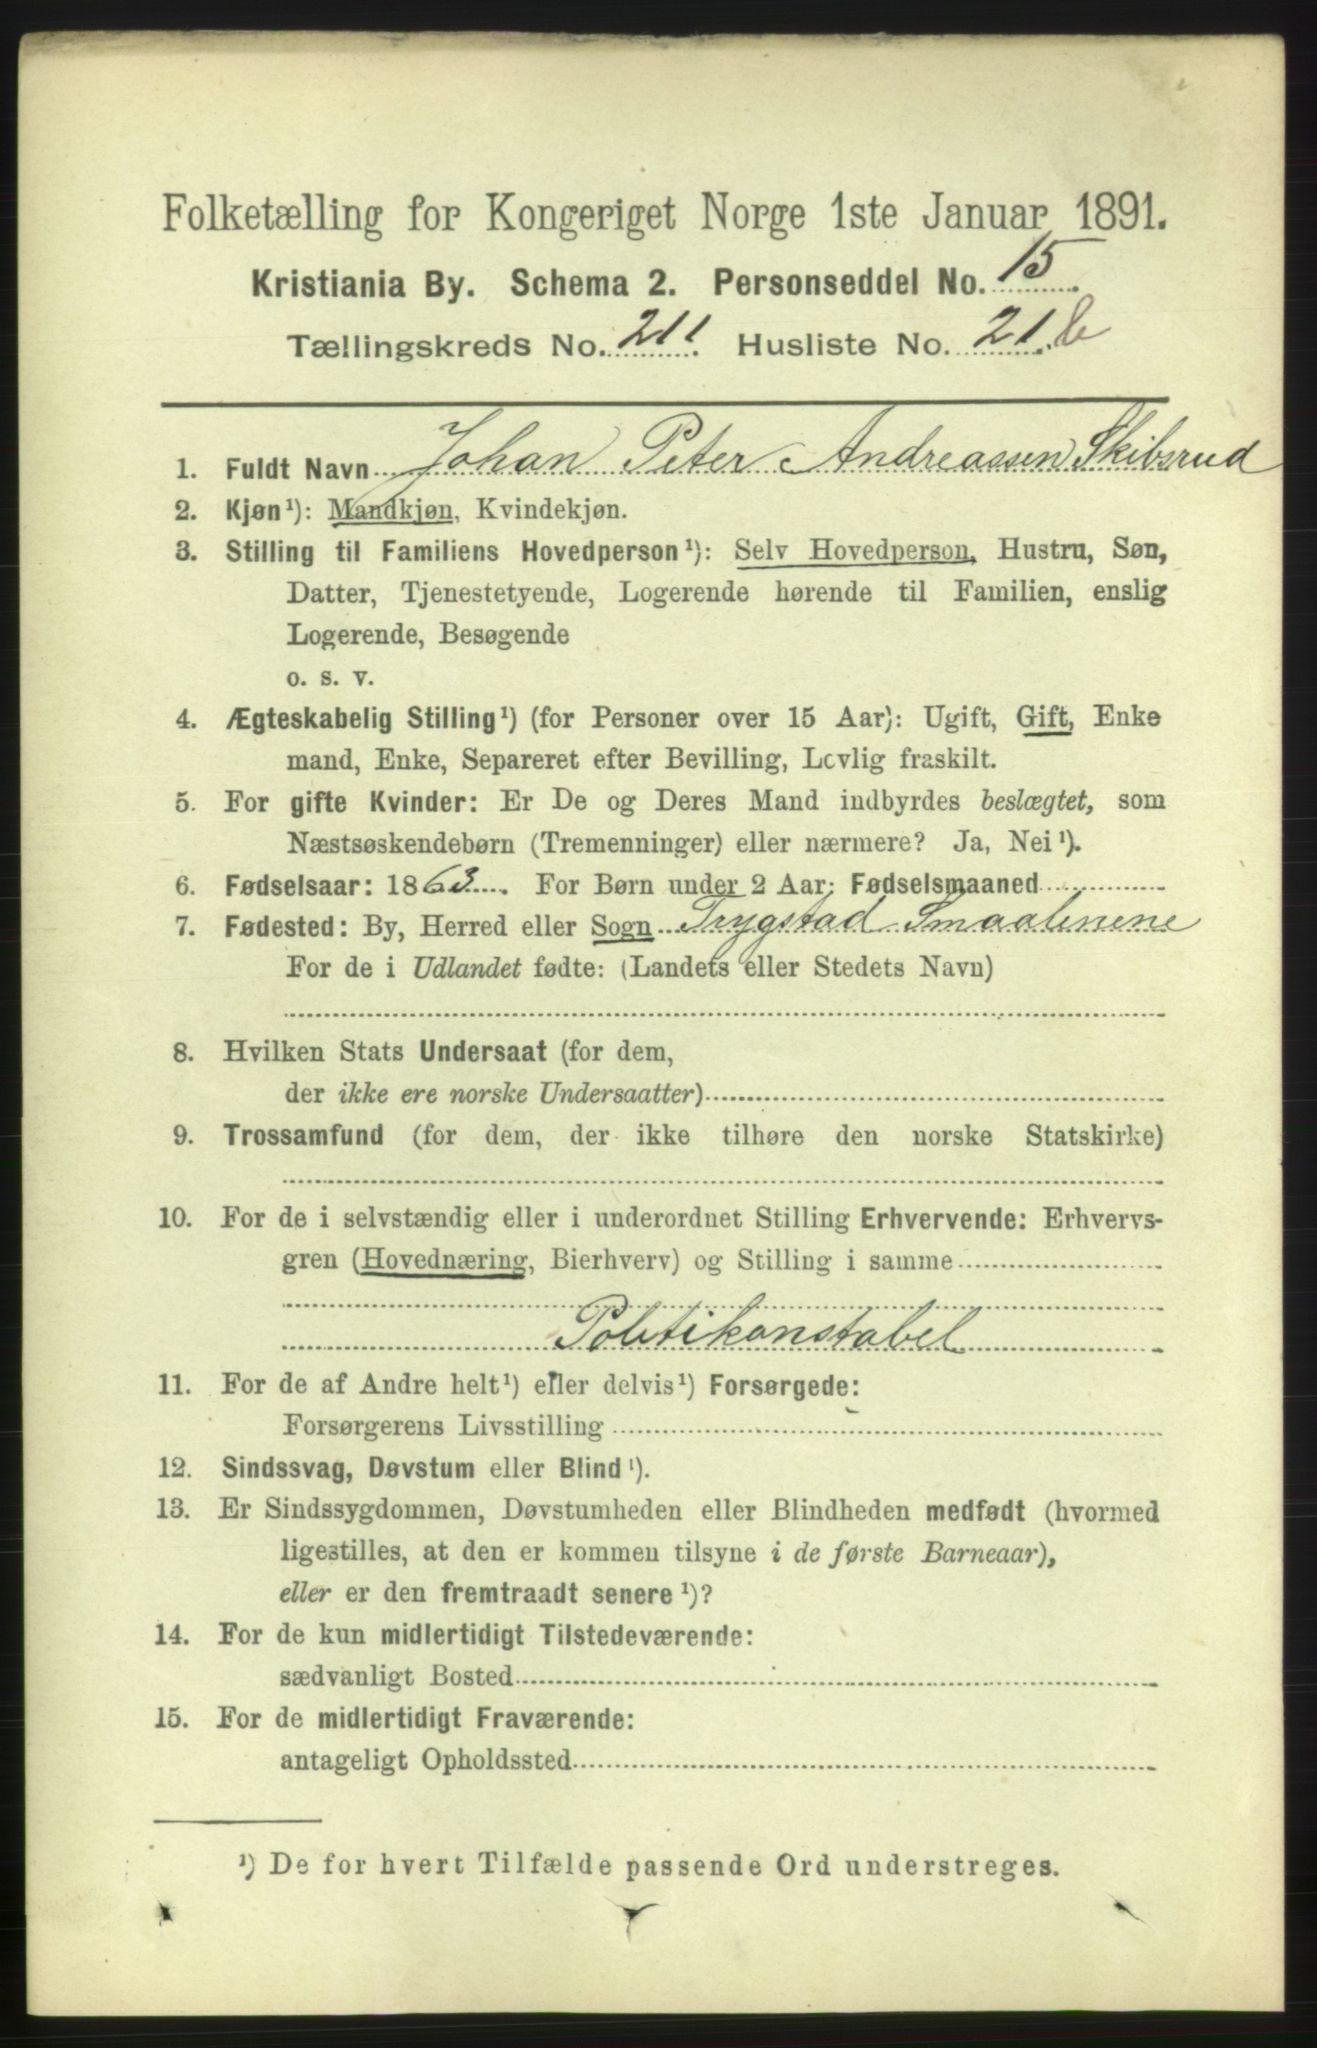 Folketælling for Kongeriget Norge 1ste Januar 1891.
Kristiania By. Schema 2. Personseddel No. 15.
Tællingskreds No. 211. Husliste No. 21.b
1. Fuldt Navn Johan Peter Andreassen Skibsrud
2. Kjøn¹): Mandkjøn, Kvindekjøn.
3. Stilling til Familiens Hovedperson¹): Selv Hovedperson, Hustru, Søn,
Datter, Tjenestetyende, Logerende hørende til Familien, enslig
Logerende, Besøgende
o. s. v.
4. Ægteskabelig Stilling¹) (for Personer over 15 Aar): Ugift, Gift, Enke
mand, Enke, Separeret efter Bevilling, Lovlig fraskilt.
5. For gifte Kvinder: Er De og Deres Mand indbyrdes beslægtet, som
Næstsøskendebørn (Tremenninger) eller nærmere? Ja, Nei¹).
6. Fødselsaar: 1863. For Børn under 2 Aar: Fødselsmaaned
7. Fødested: By, Herred eller Sogn Trygstad Smaalenene
For de i Udlandet fødte: (Landets eller Stedets Navn)
8. Hvilken Stats Undersaat (for dem,
der ikke ere norske Undersaatter)
9. Trossamfund (for dem, der ikke tilhøre den norske Statskirke)
10. For de i selvstændig eller i underordnet Stilling Erhvervende: Erhvervs-
gren (Hovednæring, Bierhverv) og Stilling i samme
Politikonstabel
11. For de af Andre helt¹) eller delvis¹) Forsørgede:
Forsørgerens Livsstilling
12. Sindssvag, Døvstum eller Blind¹).
13. Er Sindssygdommen, Døvstumheden eller Blindheden medfødt (hvormed
ligestilles, at den er kommen tilsyne i de første Barneaar),
eller er den fremtraadt senere¹)?
14. For de kun midlertidigt Tilstedeværende:
sædvanligt Bosted
15. For de midlertidigt Fraværende:
antageligt Opholdssted
¹) De for hvert Tilfælde passende Ord understreges.